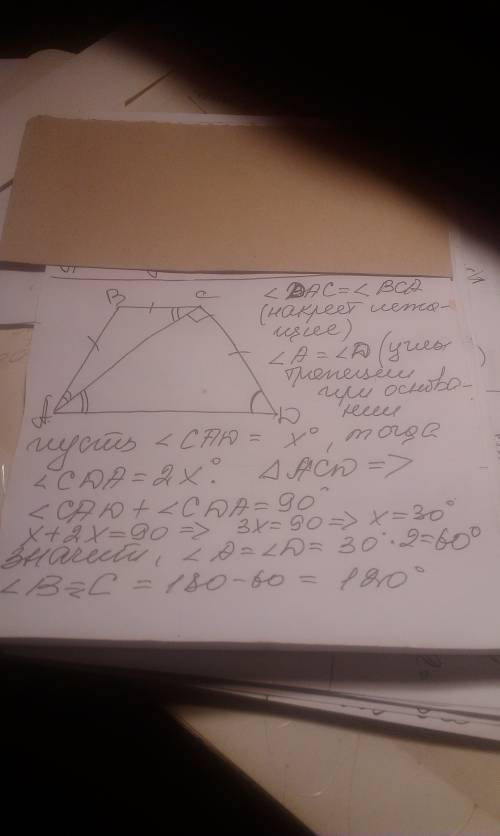 B
C
A
D
∠DAC = ∠BCA
(накрест лежа-
щие)
∠A = ∠D (углы
трапеции
при основа-
нии)
пусть ∠CAD = x°, тогда
∠CDA = 2x°. △ACD =>
∠CAD + ∠CDA = 90°
x + 2x = 90 => 3x = 90 => x = 30°
значит, ∠A = ∠D = 30°·2 = 60°
∠B = C = 180 - 60 = 120°